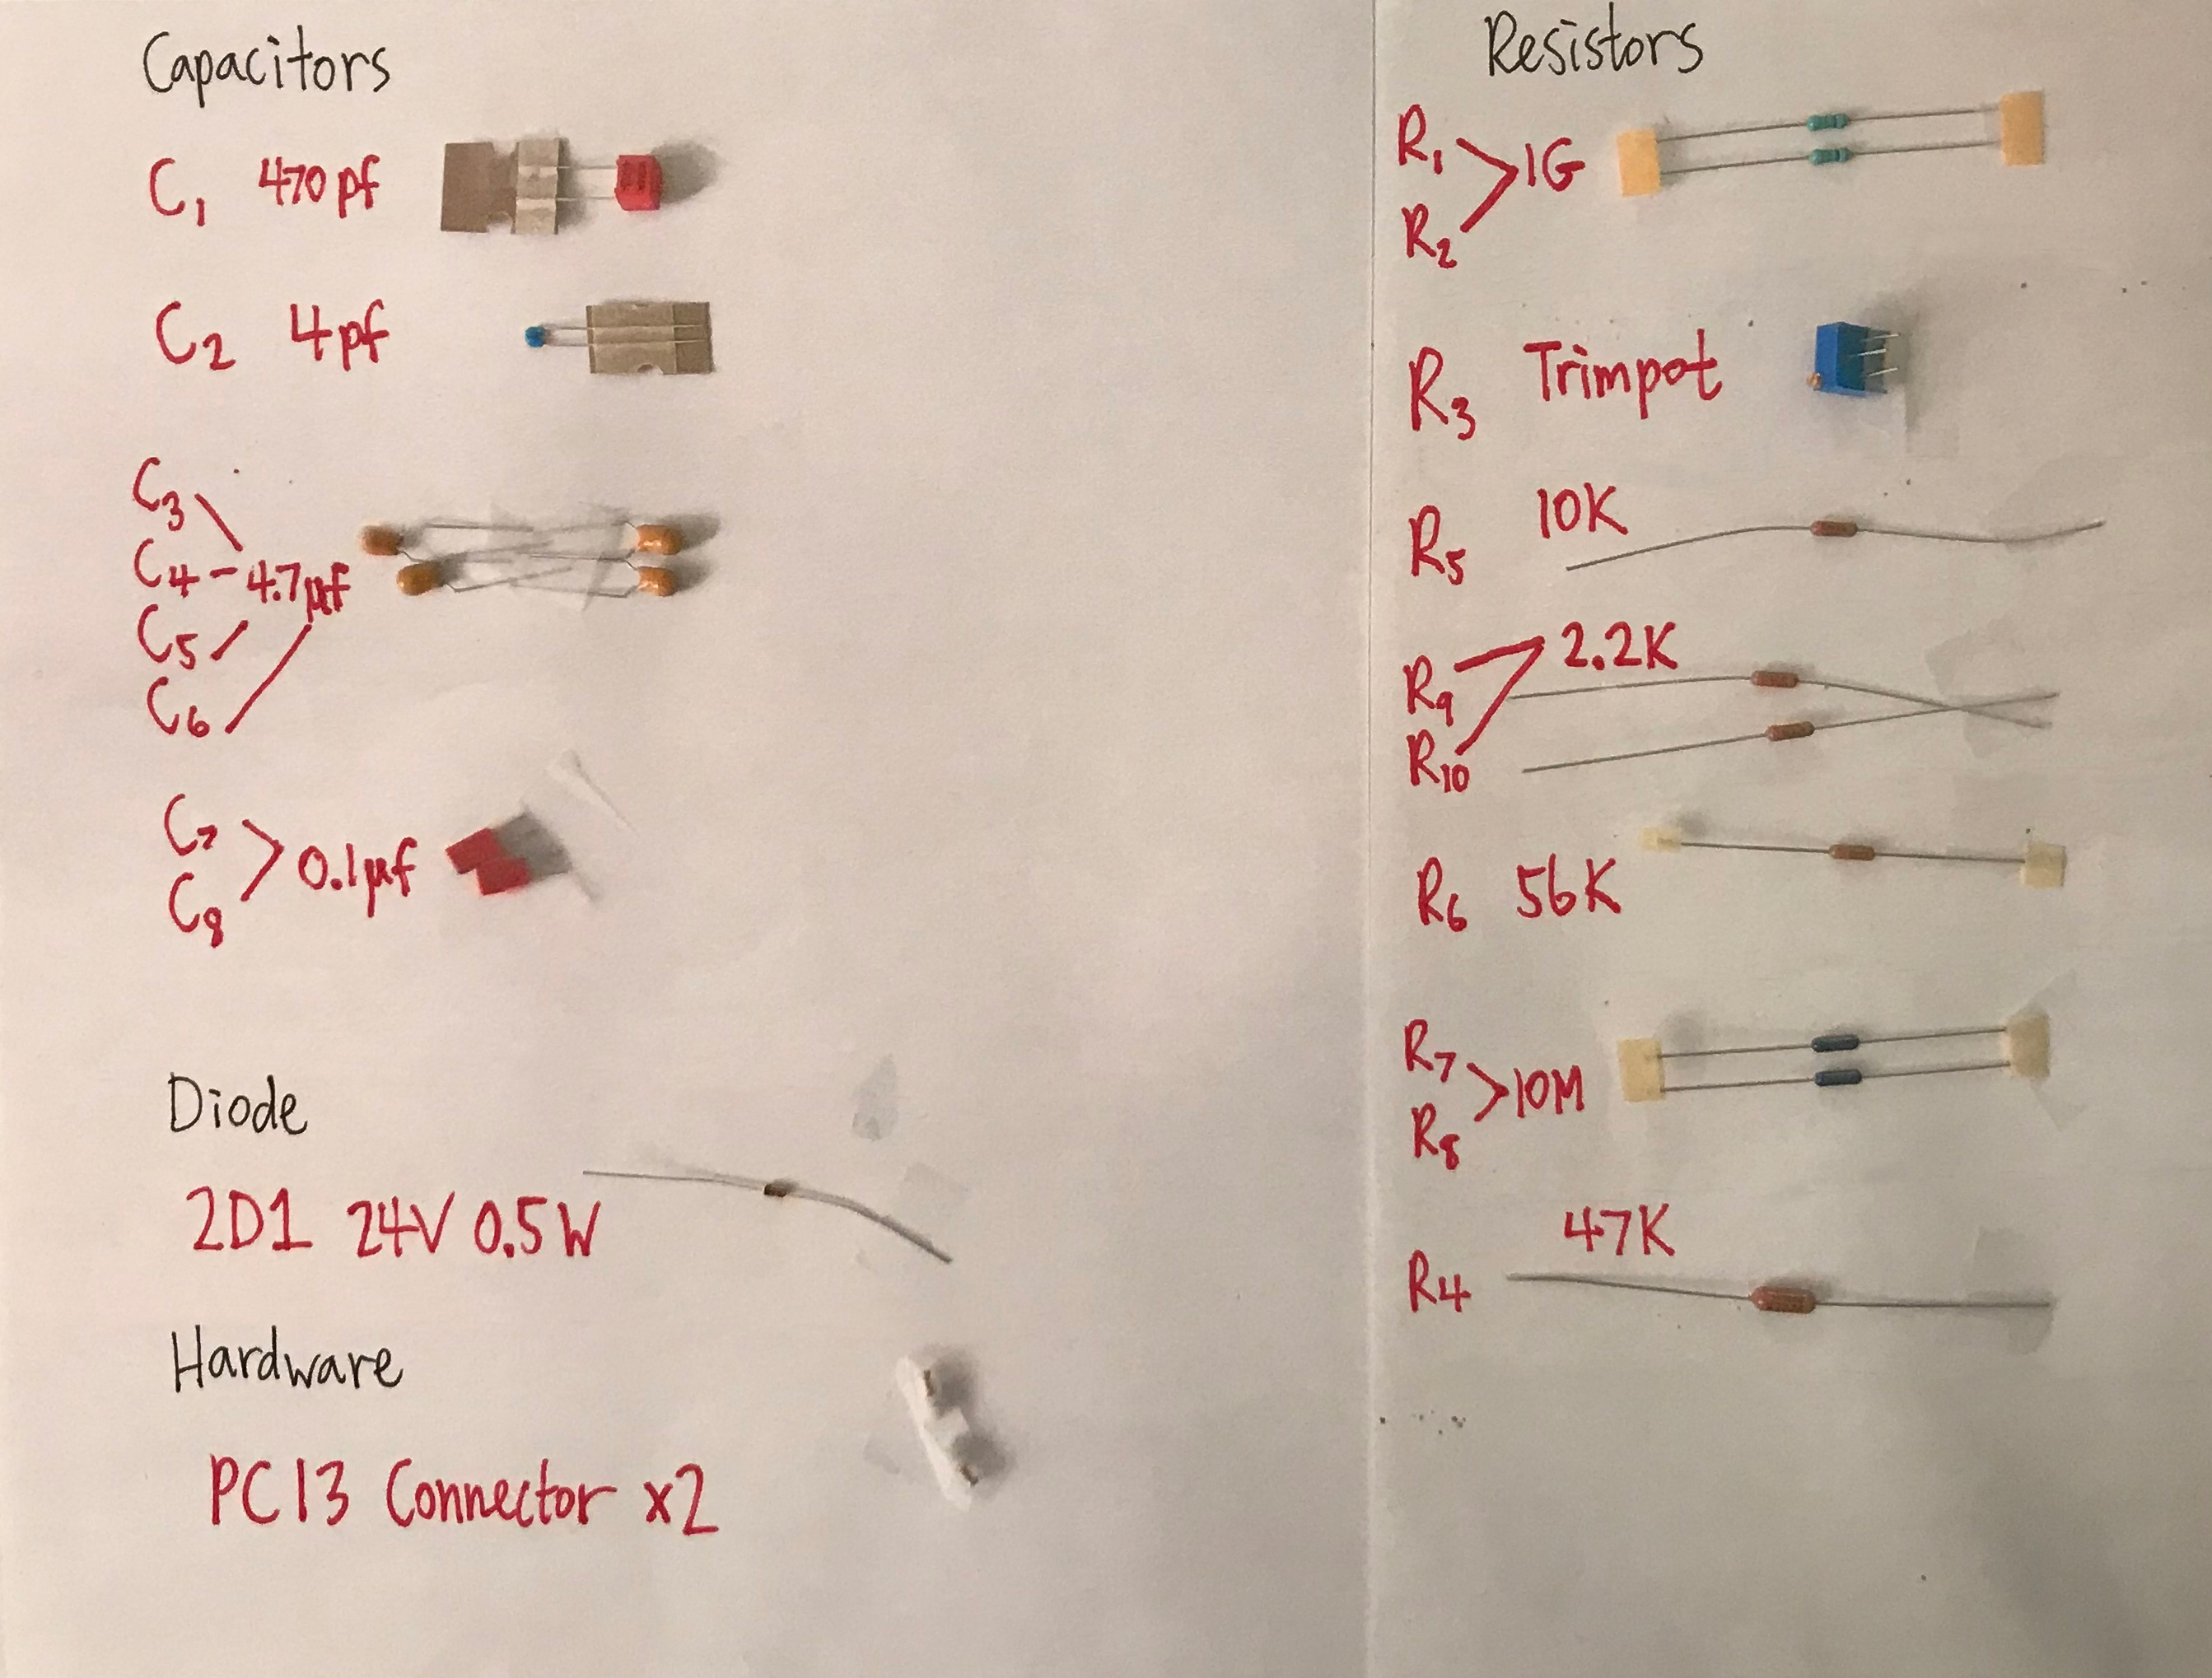 Capacitors
C1 470pf
C2 4pf
C3
C4 - 4.7µf
C5
C6
C7
C8 > 0.1µf
Diode
2D1 24V 0.5W
Hardware
PC13 Connector x2
Resistors
R1
R2 > 1G
R3 Trimpot
R5 10K
R9 2.2K
R10
R6 56K
R7
R8 > 10M
R4 47K